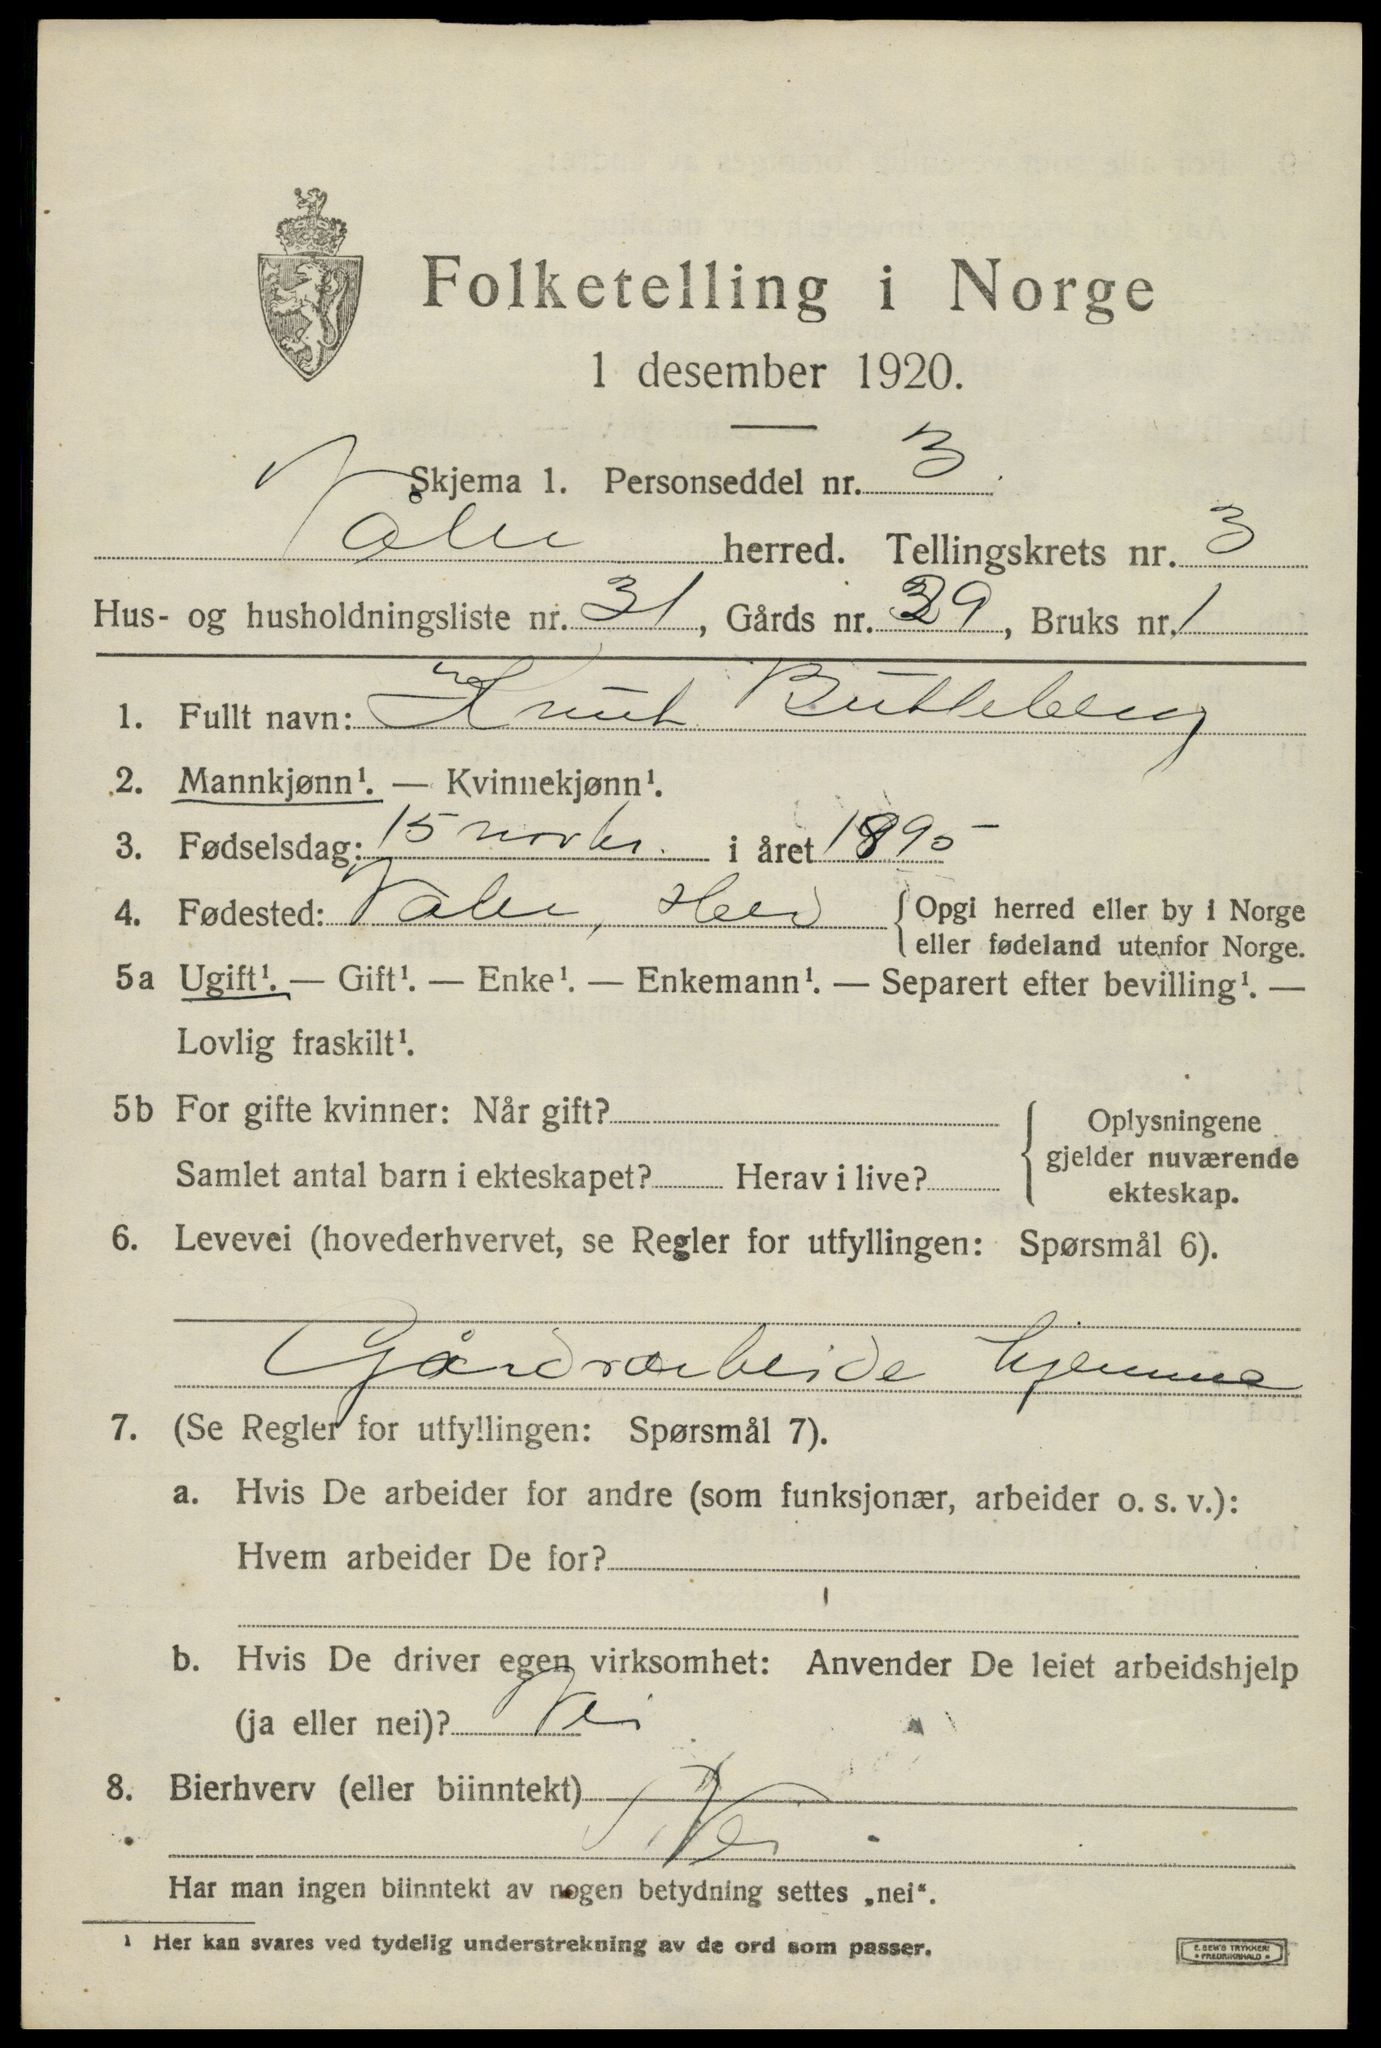 Folketelling i Norge
1 desember 1920.
Skjema 1. Personseddel nr. 3
Våler herred. Tellingskrets nr. 3
Hus- og husholdningsliste nr. 31, Gårds nr. 39, Bruks nr. 1
1. Fullt navn: Knut Butteberg
2. Mannkjønn¹. — Kvinnekjønn¹.
3. Fødselsdag: 15 novbr. i året 1895
4. Fødested: Våler, Hed { Opgi herred eller by i Norge
eller fødeland utenfor Norge.
5a Ugift¹. — Gift¹. — Enke¹. — Enkemann¹. — Separert efter bevilling¹. —
Lovlig fraskilt¹.
5b For gifte kvinner: Når gift?
Samlet antal barn i ekteskapet? Herav i live?
Oplysningene
gjelder nuværende
ekteskap.
6. Levevei (hovederhvervet, se Regler for utfyllingen: Spørsmål 6).
Gårdsarbeide hjemme
7. (Se Regler for utfyllingen: Spørsmål 7).
a. Hvis De arbeider for andre (som funksjonær, arbeider o. s. v.):
Hvem arbeider De for?
b. Hvis De driver egen virksomhet: Anvender De leiet arbeidshjelp
(ja eller nei)? Nei
8. Bierhverv (eller biinntekt)
Nei
Har man ingen biinntekt av nogen betydning settes „nei“.
¹ Her kan svares ved tydelig understrekning av de ord som passer.
E. SEM'S TRYKKERI
FREDRIKSHALD